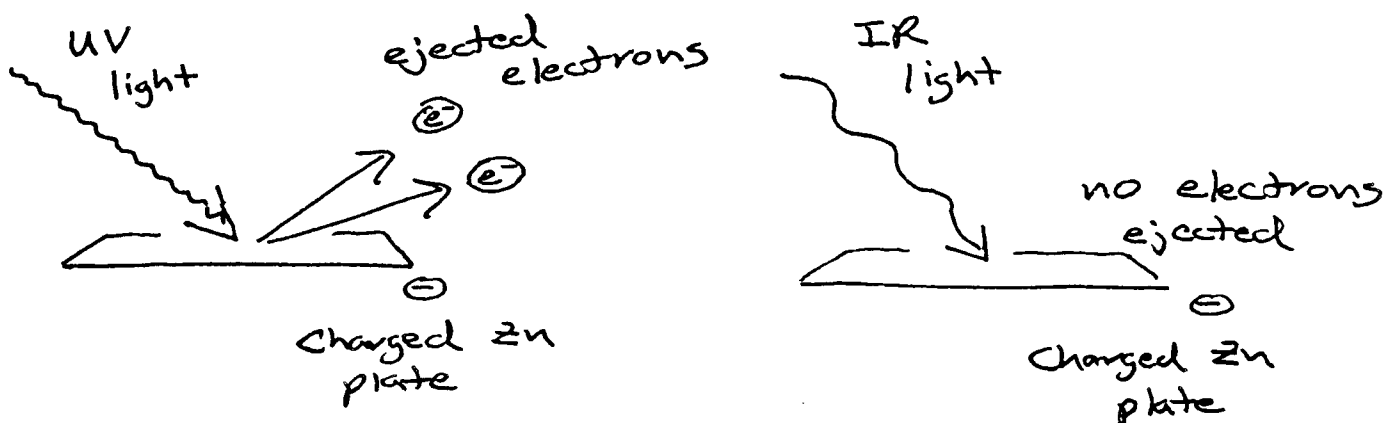 UV
light
ejected
electrons
e⁻
e⁻
⊖
Charged Zn
plate
IR
light
no electrons
ejected
⊖
Charged Zn
plate